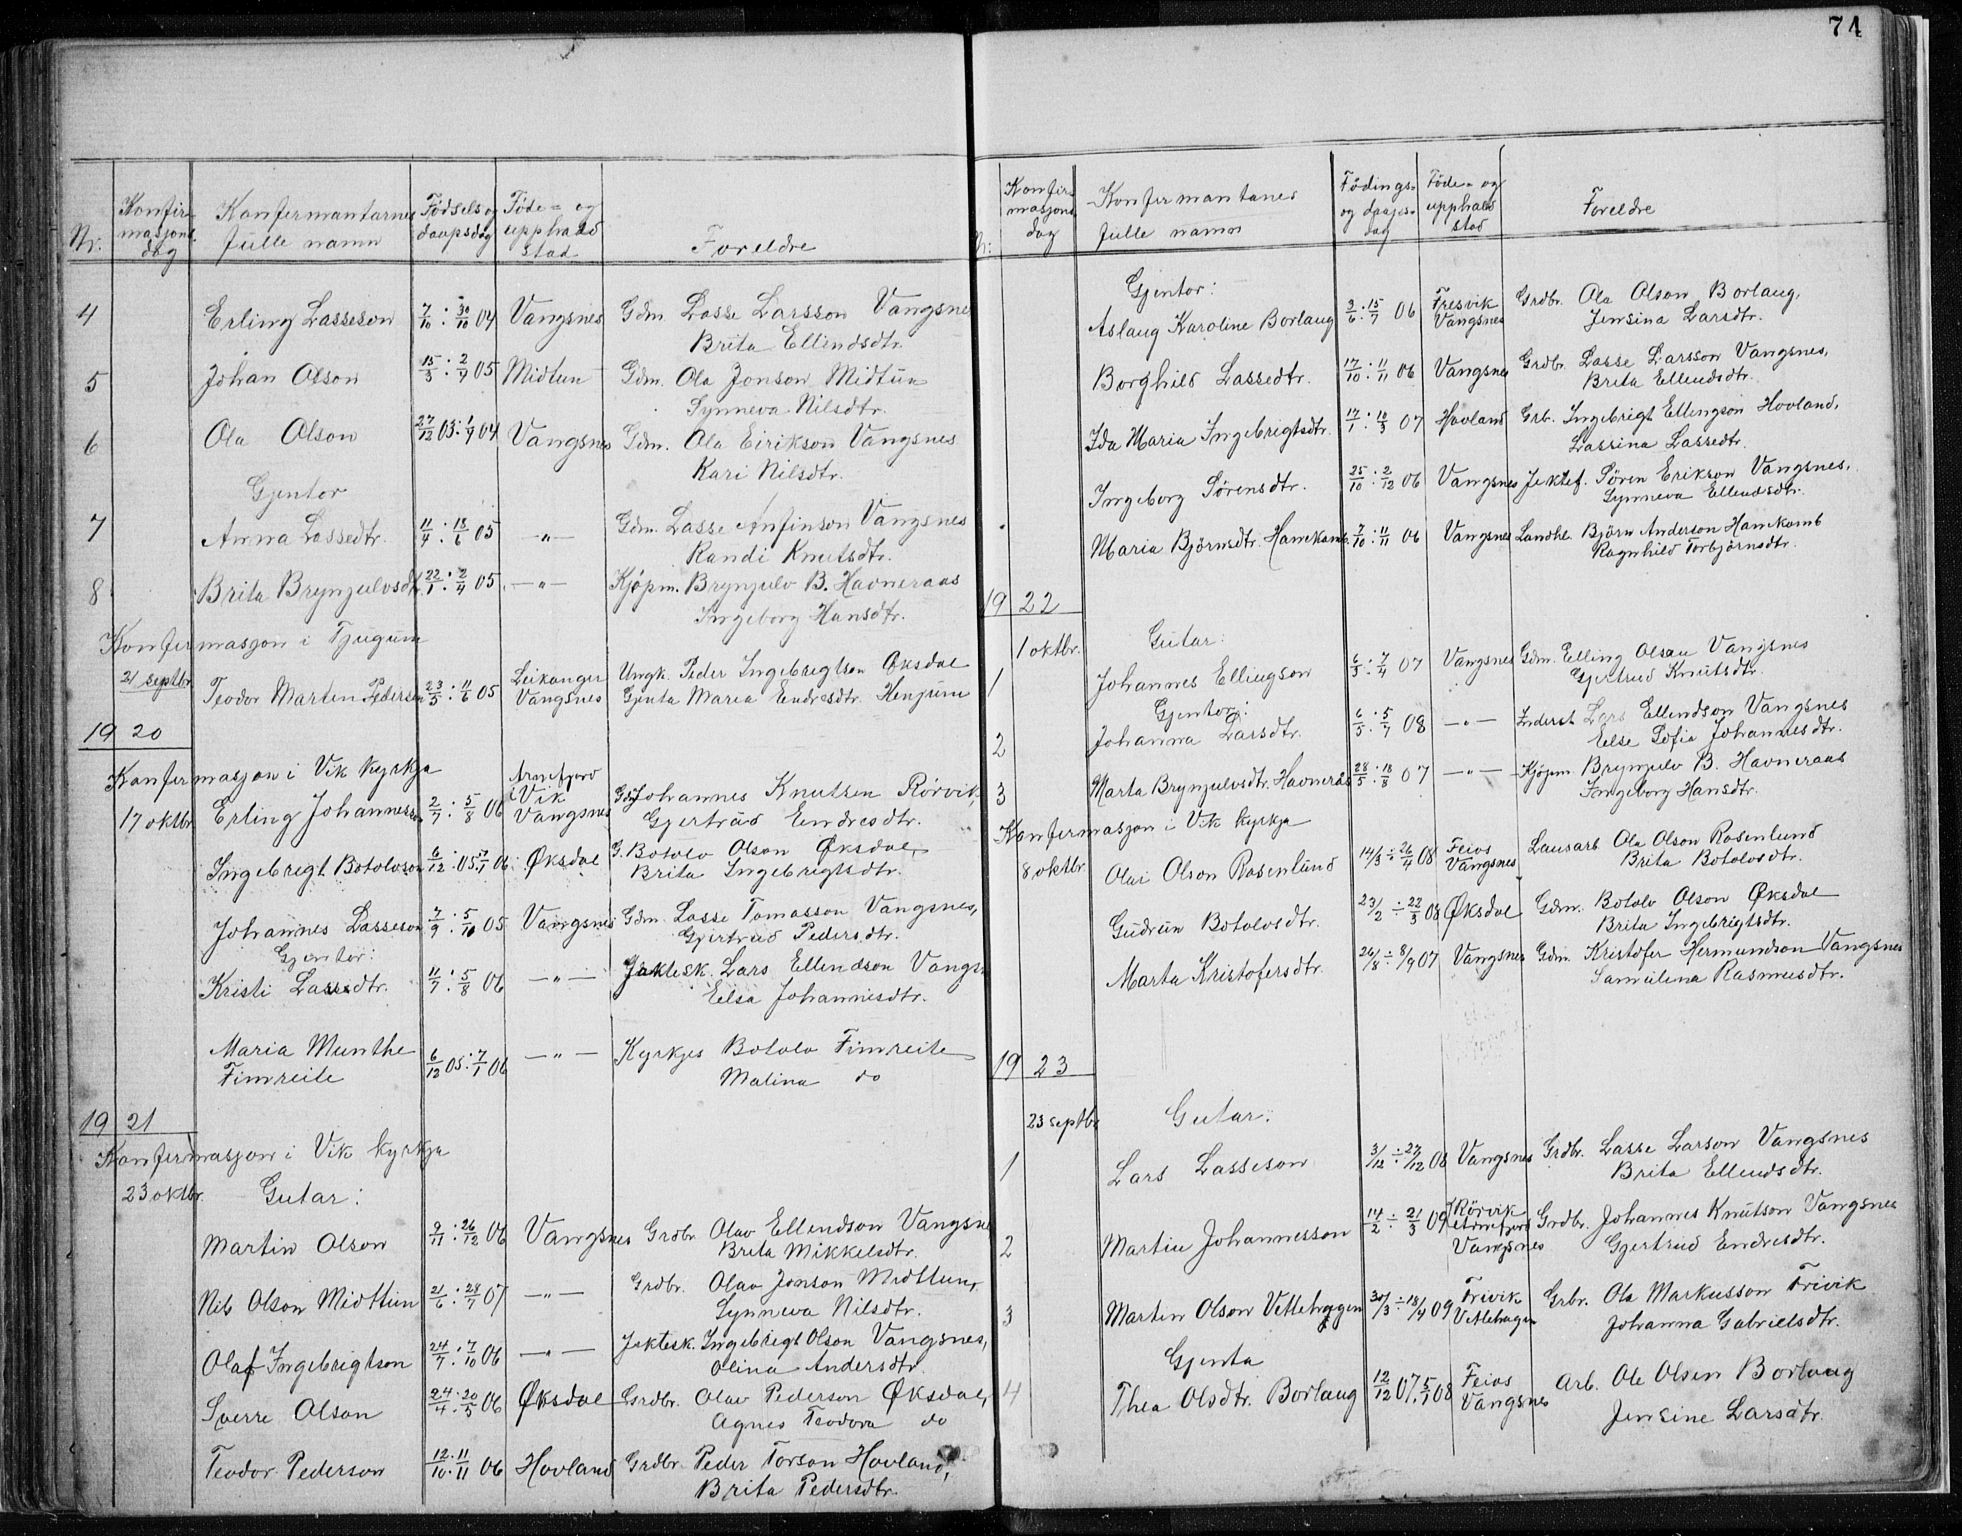 74
Nr. Konfirmasjons dag Konfermantarnes fulle namn Fødsels og daapsdag Føde- og upphald stad Foreldre
4 Erling Lasseson 7/10 : 30/10 04 Vangsnes Gdm Lasse Larsson Vangsnes
Brita Ellendsdtr.
5 Johan Olson 15/3 : 2/4 05 Midtun Gdm. Ola Jonson Midtun
Synneva Nilsdtr.
6 Ola Olson 27/12 03 : 1/4 04 Vangsnes Gdm. Ola Eirikson Vangsnes
Kari Nilsdtr.
Gjentor
7 Anna Lassedtr. 11/4 : 18/6 05 —"— Gdm. Lasse Anfinson Vangsnes
Randi Knutsdtr.
8 Brita Brynjulvsdtr. 22/1 : 2/4 05 —"— Kjøpm. Brynjulv B. Havneraas
Ingeborg Hansdtr.
Konfermasjon i Tjugum
21 septbr Teodor Marten Pederson 23/5 : 11/6 05 Leikanger Vangsnes Ungk. Peder Ingebrigtson Øksdal
Gjenta Maria Endresdtr. Henjum
1920
Konfermasjon i Vik kyrkja
17 oktbr Erling Johannesson 2/7 : 5/8 06 Arnefjord i Vik Vangsnes Gdm Johannes Knutsen Rörvik,
Gjertrud Endresdtr.
Ingebrigt Botolvson 6/12 05 : 7/1 06 Øksdal G. Botolv Olson Øksdal,
Brita Ingebrigtsdtr.
Johannes Lasseson 7/9 : 5/10 05 Vangsnes Gdm. Lasse Tomasson Vangsnes,
Gjertrud Pedersdtr.
Gjentor:
Kristi Larsdtr. 11/7 : 5/8 06 —"— Jaktesk. Lars Ellendson Vangsn
Eelsa Johannesdtr.
Maria Munthe 6/12 05 : 7/1 06 —"— Kyrkjes Botolv Fimreite
Fimreite Malina do
1921
Konfermasjon i Vik kyrkja
23 oktbr. Gutar:
Martin Olson 9/11 : 26/12 06 Vangsnes Grdbr. Olav Ellendson Vangsne
Brita Mikkelsdtr.
Nils Olson Midttun 21/6 : 28/7 07 —"— Grdbr. Olav Jonson Midttun,
Synneva Nilsdtr.
Olaf Ingebrigtson 24/7 : 7/10 06 —"— Jektesk. Ingebrigt Olson Vangsnes,
Olina Andersdtr.
Sverre Olson 24/4 : 20/5 06 Øksdal Grdbr. Olav Pederson Øksdal,
Agnes Teodora do
Teodor Pederson 12/10 : 11/11 06 Hovland Grdbr. Peder Torson Hovland,
Brita Pedersdtr.
Nr: Konfirmasjons dag Konfermantanes fulle namn Födings- og daaps- dag Föde- og upphald stad Foreldre
Gjentor:
Aslaug Karoline Borlaug 3/6 : 15/7 06 Fresvik Vangsnes Grdbr. Ola Olson Borlaug,
Jensina Larsdtr.
Borghild Lassedtr. 17/10 : 11/11 06 Vangsnes Grdbr. Lasse Larsson Vangsnes,
Brita Ellendsdtr.
Ida Maria Ingebrigtsdtr. 17/1 : 10/3 07 Hovland Grb. Ingebrigt Ellingson Hovland,
Lassina Lassedtr.
Ingeborg Sörensdtr. 25/10 : 2/12 06 Vangsnes Jektef. Sören Erikson Vangsnes,
Synneva Ellendsdtr.
Maria Björnsdtr. Hanekamb. 7/10 : 11/11 06 Vangsnes Landhl. Björn Anderson Hanekamb
Ragnhild Torbjörnsdtr.
1922
1 oktbr. Gutar:
1 Johannes Ellingson 6/3 : 7/4 07 Vangsnes Gdm. Elling Olsen Vangsnes
Gjertrud Knutsdtr.
Gjentor:
2 Johanna Larsdtr. 6/5 : 5/7 08 —"— Inderst Lars Ellendson Vangsnes
Eelse Sofia Johannesdtr.
3 Marta Brynjulvsdtr. Havneraas 28/5 : 18/8 07 —"— Kjøpm Brynjulv B. Havneraas
Ingeborg Hansdtr.
Konfermasjon i Vik kyrkja
8 oktbr Olai Olson Rosenlund 14/3 ÷ 26/4 08 Feios Vangsnes Lausarb Ola Olson Rosenlund
Brita Botolvsdtr.
Gudrun Botolvsdtr. 23/2 ÷ 22/3 08 Øksdal Gdm. Botolv Olson Øksdal
Brita Ingebrigtsdtr.
Marta Kristofersdtr. 26/8 ÷ 8/9 07 Vangsnes Gdm. Kristofer Hermundson Vangsnes
Samulina Rasmusdtr.
1923
23 septbr Gutar:
1 Lars Lasseson 3/12 ÷ 27/12 08 Vangsnes Grdbr. Lasse Larson Vangsnes
Brita Ellendsdtr.
2 Martin Johannesson 14/2 ÷ 21/3 09 Rörvik Arnefjord Vangsnes Grdbr. Johannes Knutson Vangsnes
Gjertrud Endresdtr.
3 Marten Olson Vettehagen 30/3 ÷ 18/4 09 Frivik Vettehagen Grbr. Ola Markusson Frivik
Johanna Gabrielsdtr.
Gjenta
4 Thea Olsdtr. Borlaug 12/12 07 5/1 08 Feios Vangsnes Arb. Ole Olsen Borlaug
Jensine Larsdtr.